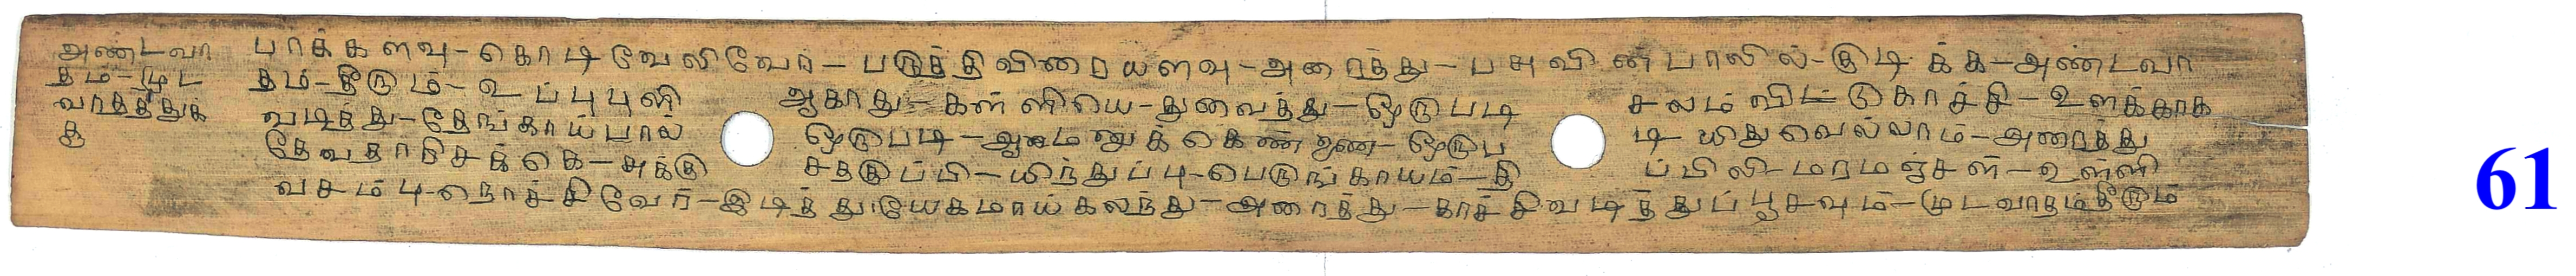 அண்டவா பாக்களவு-கொடிவேலிவேர்-பருத்திவிரையளவு-அரைத்து-பசுவின்பாலில்-குடிக்க-அண்டவா
தம்-முட தம்-தீரும்-உப்புபுளி ஆகாது-கள்ளியை-துவைத்து-ஒருபடி சலம்விட்டுகாச்சி-உளக்காக
வாதத்துக் வடித்து-தேங்காய்பால் ஒருபடி-ஆமணக்கெண்ணை-ஒருப டியிதுவெல்லாம்-அரைத்து
கு தேவதாரிசக்கை-சுக்கு சதகுப்பி-யிந்துப்பு-பெருங்காயம்-தி ப்பிலி-மரமஞ்சள்-உள்ளி
வசம்பு-நொச்சிவேர்-இடித்துயேகமாய்கலந்து-அரைத்து-காச்சிவடித்துப்பூசவும்-முடவாதம்தீரும்
61